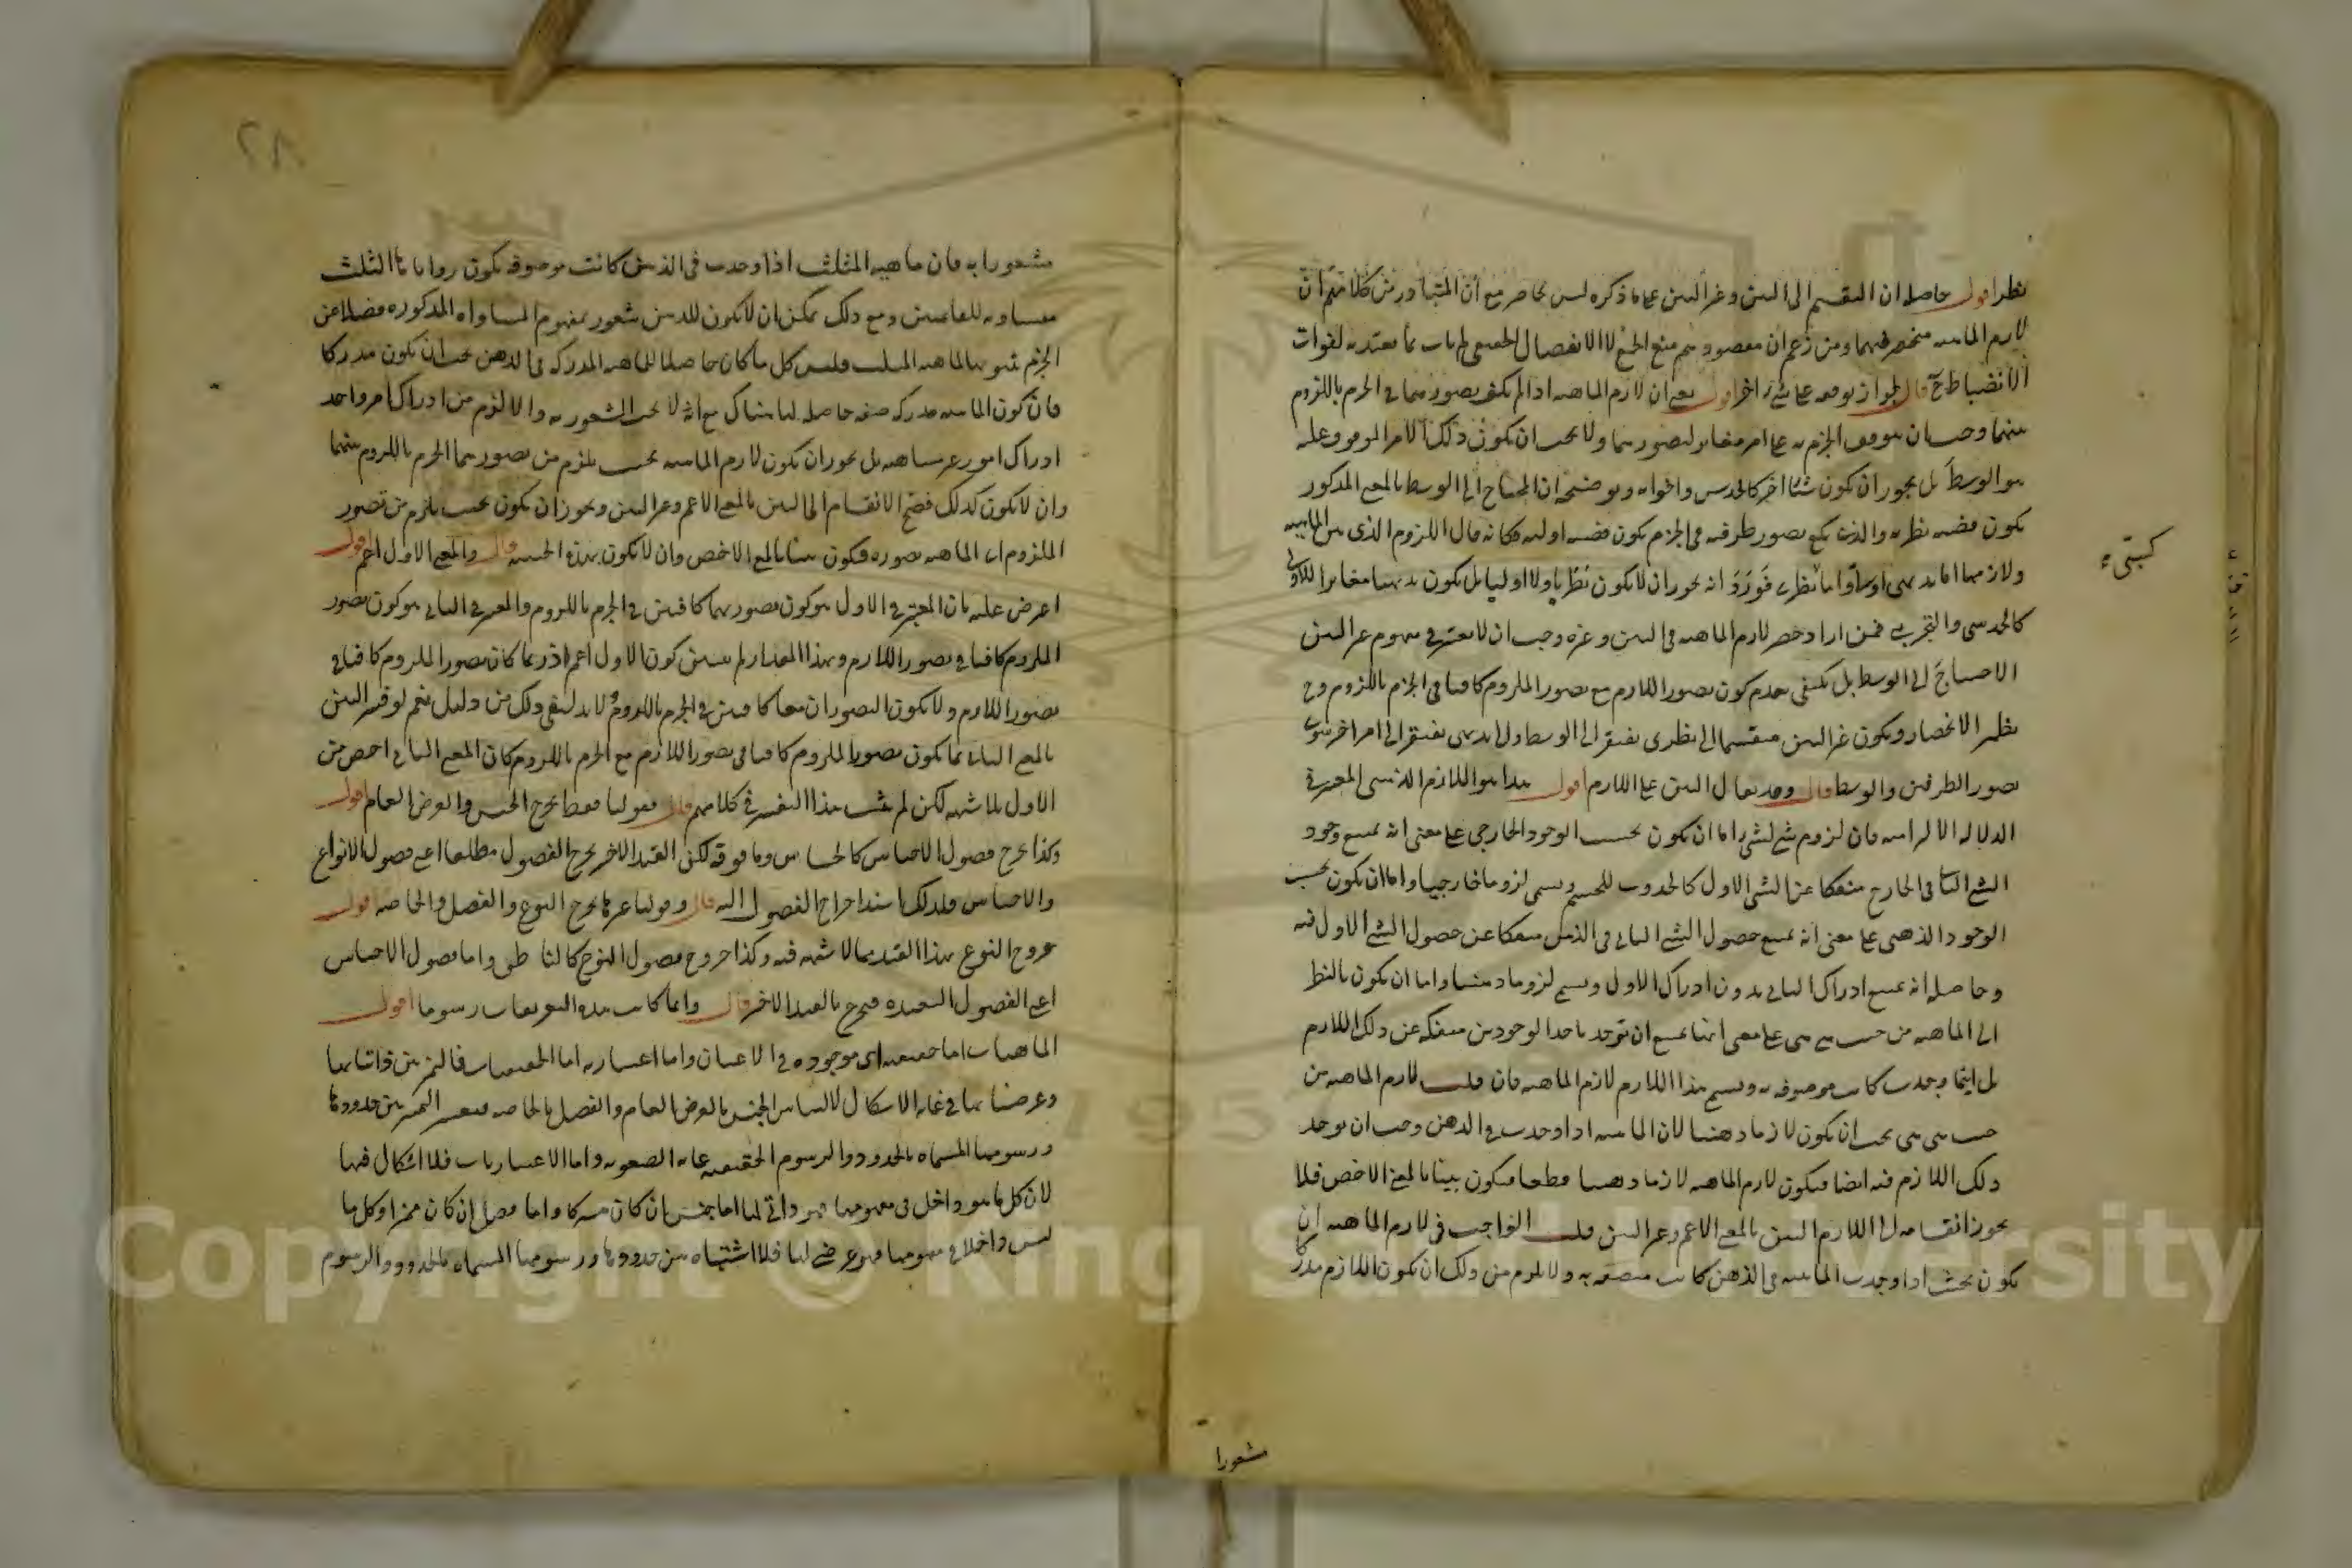 نظر اقول حاصله ان التقسيم الى البين وغير البين على ما ذكره ليس بحاصر مع ان المتبادر من كلامهم ان
لازم الماهية منحصر فيهما ومن زعم ان مقصودهم منع الجمع لا الانفصال الحقيقي لم يات بما يعتد به لفوات
الانضباط ح قال لجواز توقفه على شيء اخر اقول يعني ان لازم الماهية اذا لم يكف تصورهما في الجزم باللزوم
بينهما وجب ان يتوقف الجزم به على امر مغاير لتصورهما ولا يجب ان يكون ذلك الامر الموقوف عليه
هو الوسط بل يجوز ان يكون شيئا اخر كالحدس واخواته وتوضيحه ان المحتاج الى الوسط بالمعنى المذكور
يكون قضية نظرية والذي يكفي تصور طرفيه في الجزم يكون قضية اولية فكانه قال اللزوم الذي بين الماهية
ولازمها اما بديهي اولي واما نظري فورد انه يجوز ان لا يكون نظريا ولا اوليا بل يكون بديهيا مغايرا للاولى
كالحدسي والتجربي فمن اراد حصر لازم الماهية في البين وغيره وجب ان لا يعتبر في مفهوم غير البين
الاحتياج الى الوسط بل يكتفي بعدم كون تصور اللازم مع تصور الملزوم كافيا في الجزم باللزوم وح
يظهر الانحصار ويكون غير البين منقسما الى نظري يفتقر الى الوسط والى بديهي يفتقر الى امر اخر سوى
تصور الطرفين والوسط قال وقد يقال البين على اللازم اقول هذا هو اللازم الذهني المعتبر في
الدلالة الالتزامية فان لزوم شيء لشيء اما ان يكون بحسب الوجود الخارجي على معنى انه يمتنع وجود
الشيء الثاني في الخارج منفكا عن الشيء الاول كالحدوث للجسم ويسمى لزوما خارجيا واما ان يكون بحسب
الوجود الذهني على معنى انه يمتنع حصول الشيء الثاني في الذهن منفكا عن حصول الشيء الاول فيه
وحاصله انه يمتنع ادراك الثاني بدون ادراك الاول ويسمى لزوما ذهنيا واما ان يكون بالنظر
الى الماهية من حيث هي هي على معنى انها يمتنع ان توجد باحد الوجودين منفكة عن ذلك اللازم
بل اينما وجدت كانت موصوفة به ويسمى هذا اللازم لازم الماهية فان قلت لازم الماهية من
حيث هي هي يجب ان يكون لازما ذهنيا لان الماهية اذا وجدت في الذهن وجب ان يوجد
ذلك اللازم فيه ايضا فيكون لازم الماهية لازما ذهنيا قطعا فيكون بينا بالمعنى الاخص فلا
يجوز انقسامه الى اللازم البين بالمعنى الاعم وغير البين قلت الواجب في لازم الماهية ان
يكون بحيث اذا وجدت الماهية في الذهن كانت متصفة به ولا يلزم من ذلك ان يكون اللازم مدركا
مشعورا
مشعورا به فان ماهية المثلث اذا وجدت في الذهن كانت موصوفة بكون زواياها الثلث
مساوية للقائمتين ومع ذلك يمكن ان لا يكون للذهن شعور بمفهوم المساواة المذكورة فضلا عن
الجزم بثبوتها لماهية المثلث فليس كل ما كان حاصلا للماهية المدركة في الذهن يجب ان يكون مدركا
فان كون الماهية مدركة صفة حاصلة لها هناك مع انه لا يجب الشعور به والا لزم من ادراك امر واحد
ادراك امور غير متناهية بل يجوز ان يكون لازم الماهية بحيث يلزم من تصورهما الجزم باللزوم بينهما
وان لا يكون كذلك فصح الانقسام الى البين بالمعنى الاعم وغير البين ويجوز ان يكون بحيث يلزم من تصور
الملزوم اي الماهية تصوره فيكون بينا بالمعنى الاخص وان لا يكون بهذه الحيثية قال والمعنى الاول اعم اقول
اعترض عليه بان المعتبر في الاول هو كون تصورهما كافيين في الجزم باللزوم والمعتبر في الثاني هو كون تصور
الملزوم كافيا في تصور اللازم وبهذا المقدار لم يتبين كون الاول اعم اذ ربما كان تصور الملزوم كافيا في
تصور اللازم ولا يكون التصوران معا كافيين في الجزم باللزوم لا بد لنفي ذلك من دليل نعم لو فسر البين
بالمعنى الثاني بما يكون تصور الملزوم كافيا في تصور اللازم مع الجزم باللزوم كان المعنى الثاني اخص من
الاول بلا شبهة لكن لم يثبت هذا التفسير في كلامهم قال فقولنا فقط يخرج الجنس والعرض العام اقول
وكذا يخرج فصول الاجناس كالحساس وما فوقه لكن القيد الاخير يخرج الفصول مطلقا اعني فصول الانواع
والاجناس فلذلك اسند اخراج الفصول اليه قال وقولنا عرضيا يخرج النوع والفصل والخاصة اقول
خروج النوع بهذا القيد مما لا شبهة فيه وكذا خروج فصول النوع كالناطق واما فصول الاجناس
اعني الفصول البعيدة فيخرج بالقيد الاخير قال وانما كانت هذه التعريفات رسوما اقول
الماهيات اما حقيقية اي موجودة في الاعيان واما اعتبارية اما الحقيقيات فالتمييز بين ذاتياتها
وعرضياتها في غاية الاشكال لالتباس الجنس بالعرض العام والفصل بالخاصة فيعسر التمييز بين حدودها
ورسومها المسماة بالحدود والرسوم الحقيقية غاية الصعوبة واما الاعتباريات فلا اشكال فيها
لان كل ما هو داخل في مفهومها فهو ذاتي لها اما جنس ان كان مشتركا واما فصل ان كان مميزا وكل ما
ليس داخلا في مفهومها فهو عرضي لها فلا اشتباه بين حدودها ورسومها المسماة بالحدود والرسوم
٢٨
Copyright © King Saud University